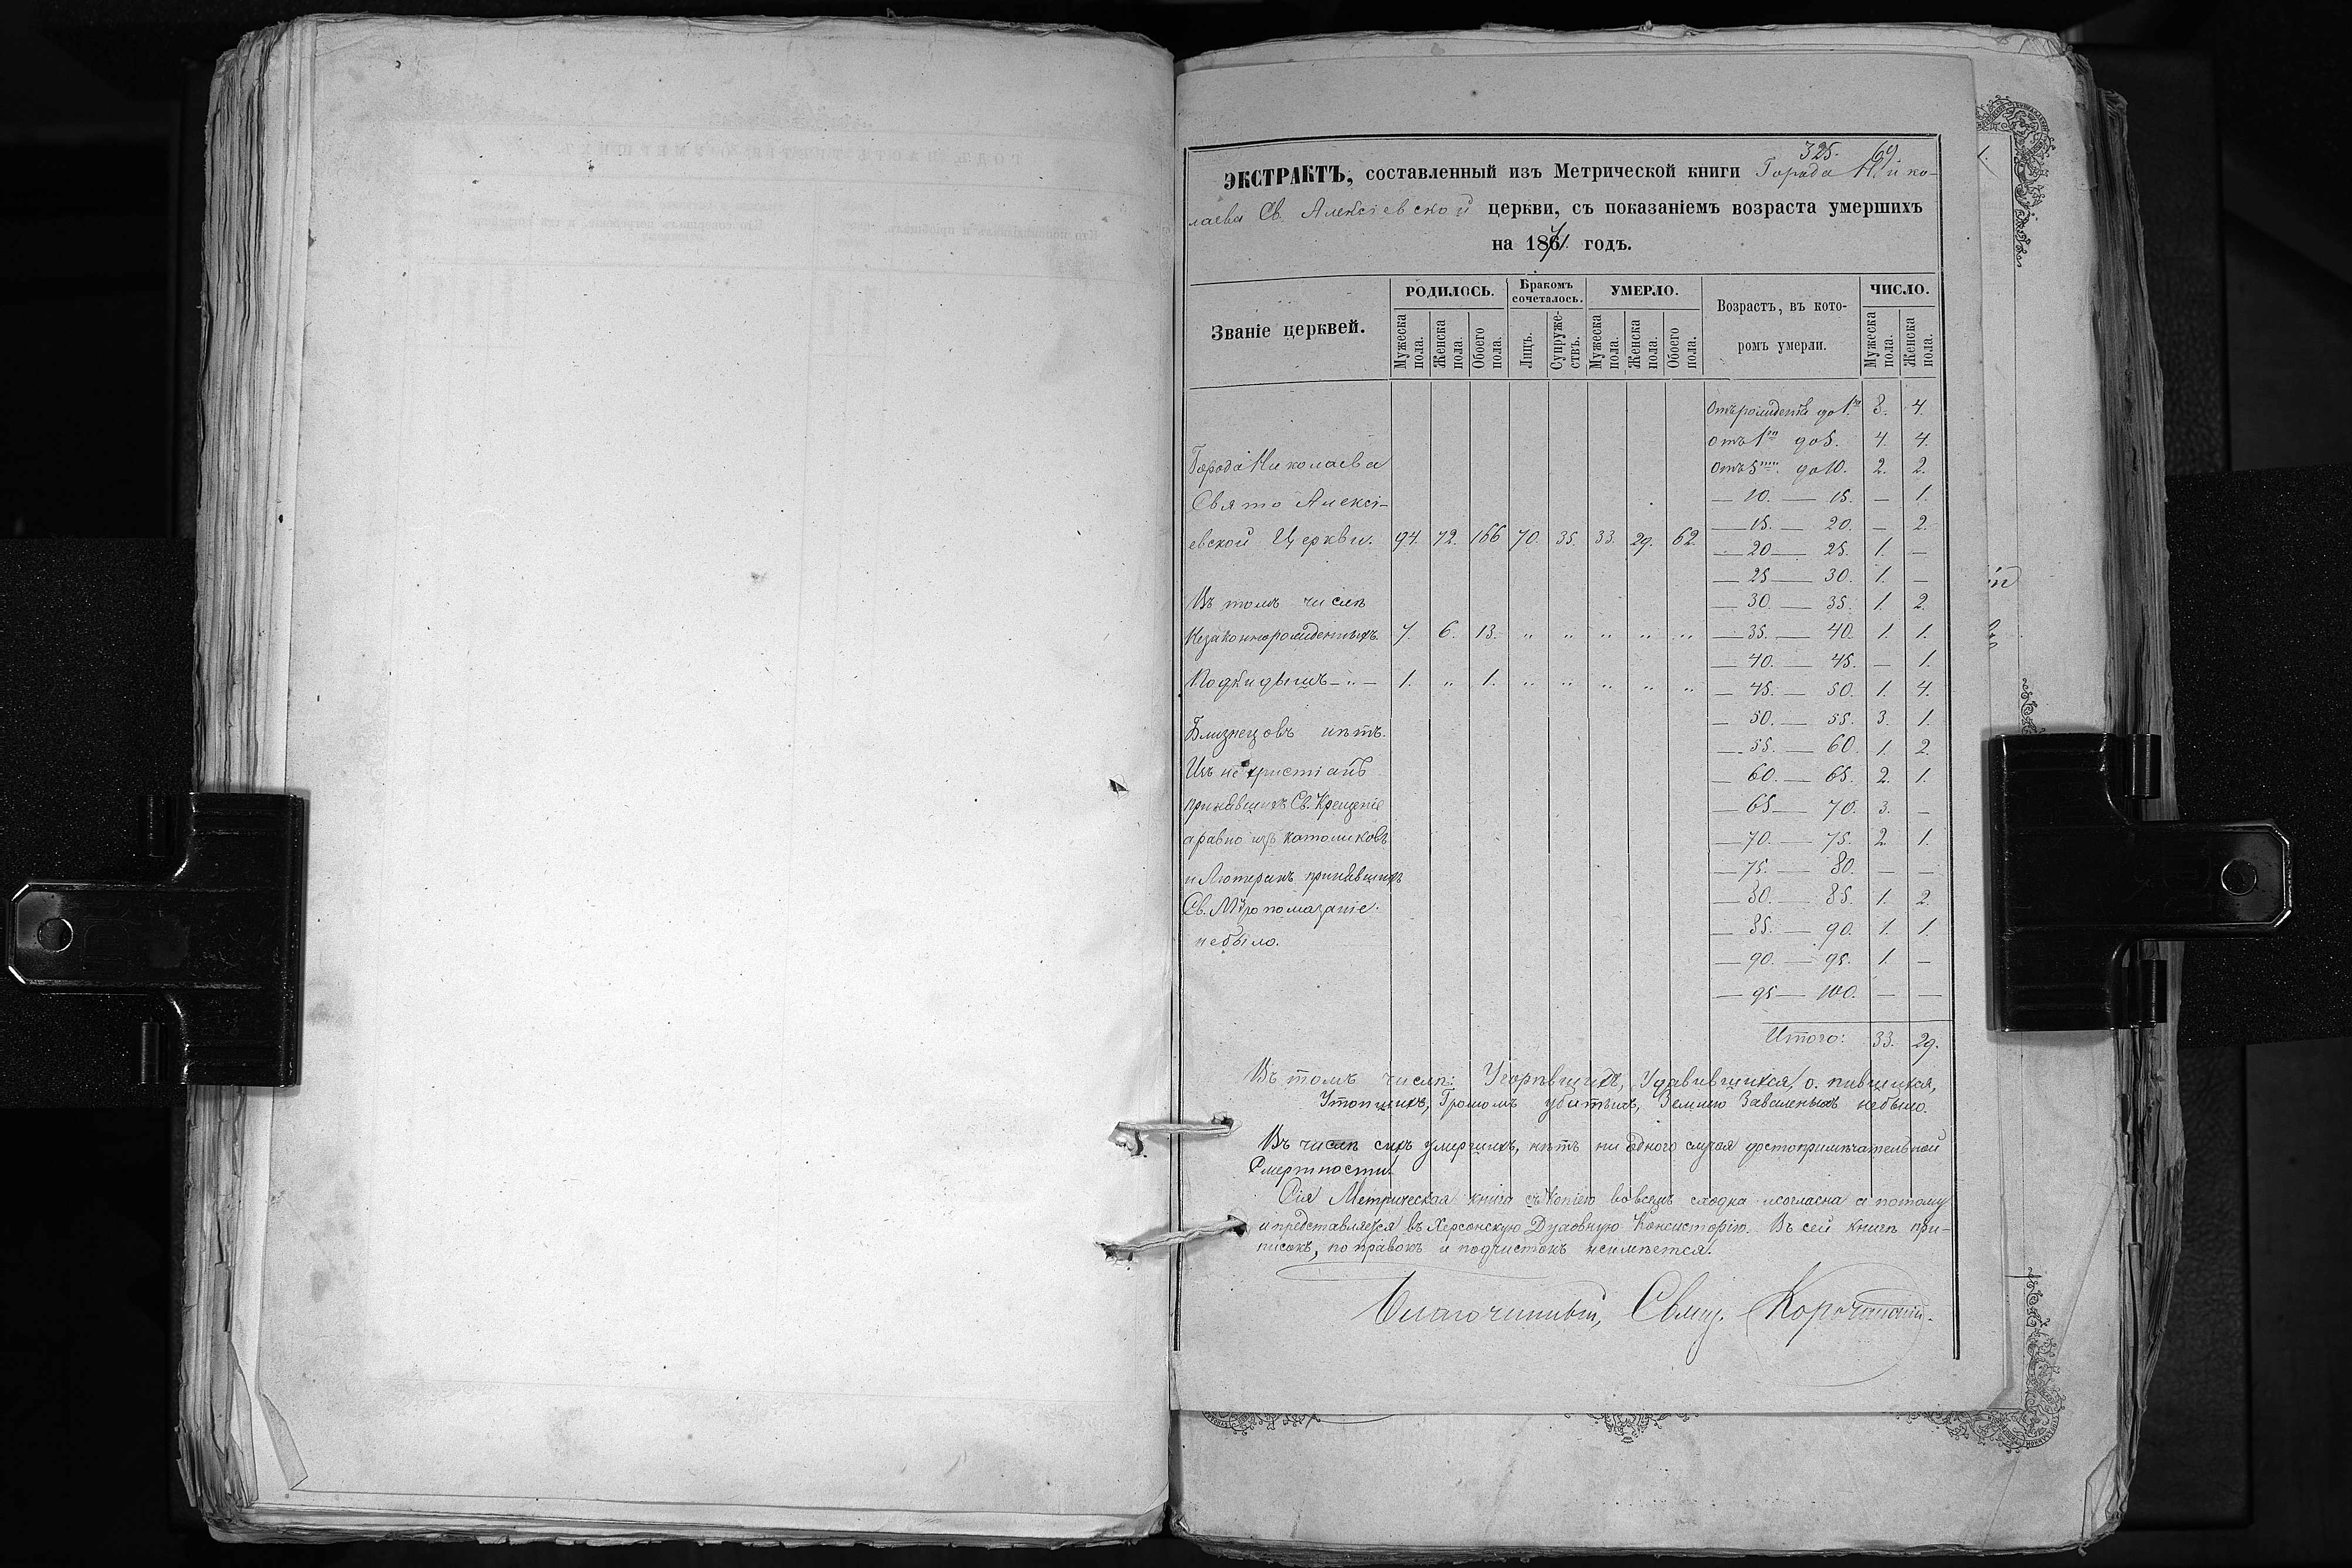 325. 69.
ЭКСТРАКТЪ, составленный изъ Метрической книги Города Нико-
лаева Св. Алексіевской церкви, съ показаніемъ возраста умершихъ
на 1871 годъ.
Званіе церквей. РОДИЛОСЬ. Бракомъ сочеталось. УМЕРЛО. Возрастъ, въ кото-ромъ умерли. ЧИСЛО.
Мужеска пола. Женска пола. Обоего пола. Лицъ. Супруже-ствъ. Мужеска пола. Женска пола. Обоего пола. Мужеска пола. Женска пола.
Города Николаева
Свято Алексі-
евской Церкви. 94. 72. 166 70. 35. 33. 29. 62.
Въ томъ числѣ
Незаконнорожденныхъ 7. 6. 13. " " " " "
Подкидышъ - " - 1. " 1. " " " " "
Близнецовъ нѣтъ.
Изъ не христіанъ
принявшихъ Св. Крещеніе
а равно изъ католиковъ
и Лютеранъ принявшихъ
Св. Мѵропомазаніе
небыло.
Отъ рожденія до 1го 8. 4.
отъ 1го до 5. 4. 4.
отъ 5ти до 10. 2. 2.
— 10. — 15. — 1.
— 15. — 20. — 2.
— 20 — 25. 1. —
— 25 — 30. 1. —
— 30. — 35. 1. 2.
— 35. — 40. 1. 1.
— 40. — 45. — 1.
— 45. — 50. 1. 4.
— 50. — 55. 3. 1.
— 55. — 60. 1. 2.
— 60. — 65. 2. 1.
— 65 — 70. 3. —
— 70. — 75. 2. 1.
— 75. — 80. — —
— 80. — 85. 1. 2.
— 85. — 90. 1. 1.
— 90. — 95. 1. —
— 95 — 100. — —
Итого: 33. 29.
Въ томъ числѣ: Угорѣвшихъ, Удавившихся, опившихся,
Утопшихъ, Громомъ убитыхъ, Землею Заваленныхъ небыло.
Въ числѣ сихъ умершихъ, нѣтъ ни одного случая достопримѣчательной
Смертности.
Сія Метрическая книга съ Копіею вовсемъ сходна и согласна а потому
и представляется въ Херсонскую Духовную Консисторію. Въ сей книгѣ при-
писокъ, поправокъ и подчистокъ неимѣется.
Благочинный, Свящ.